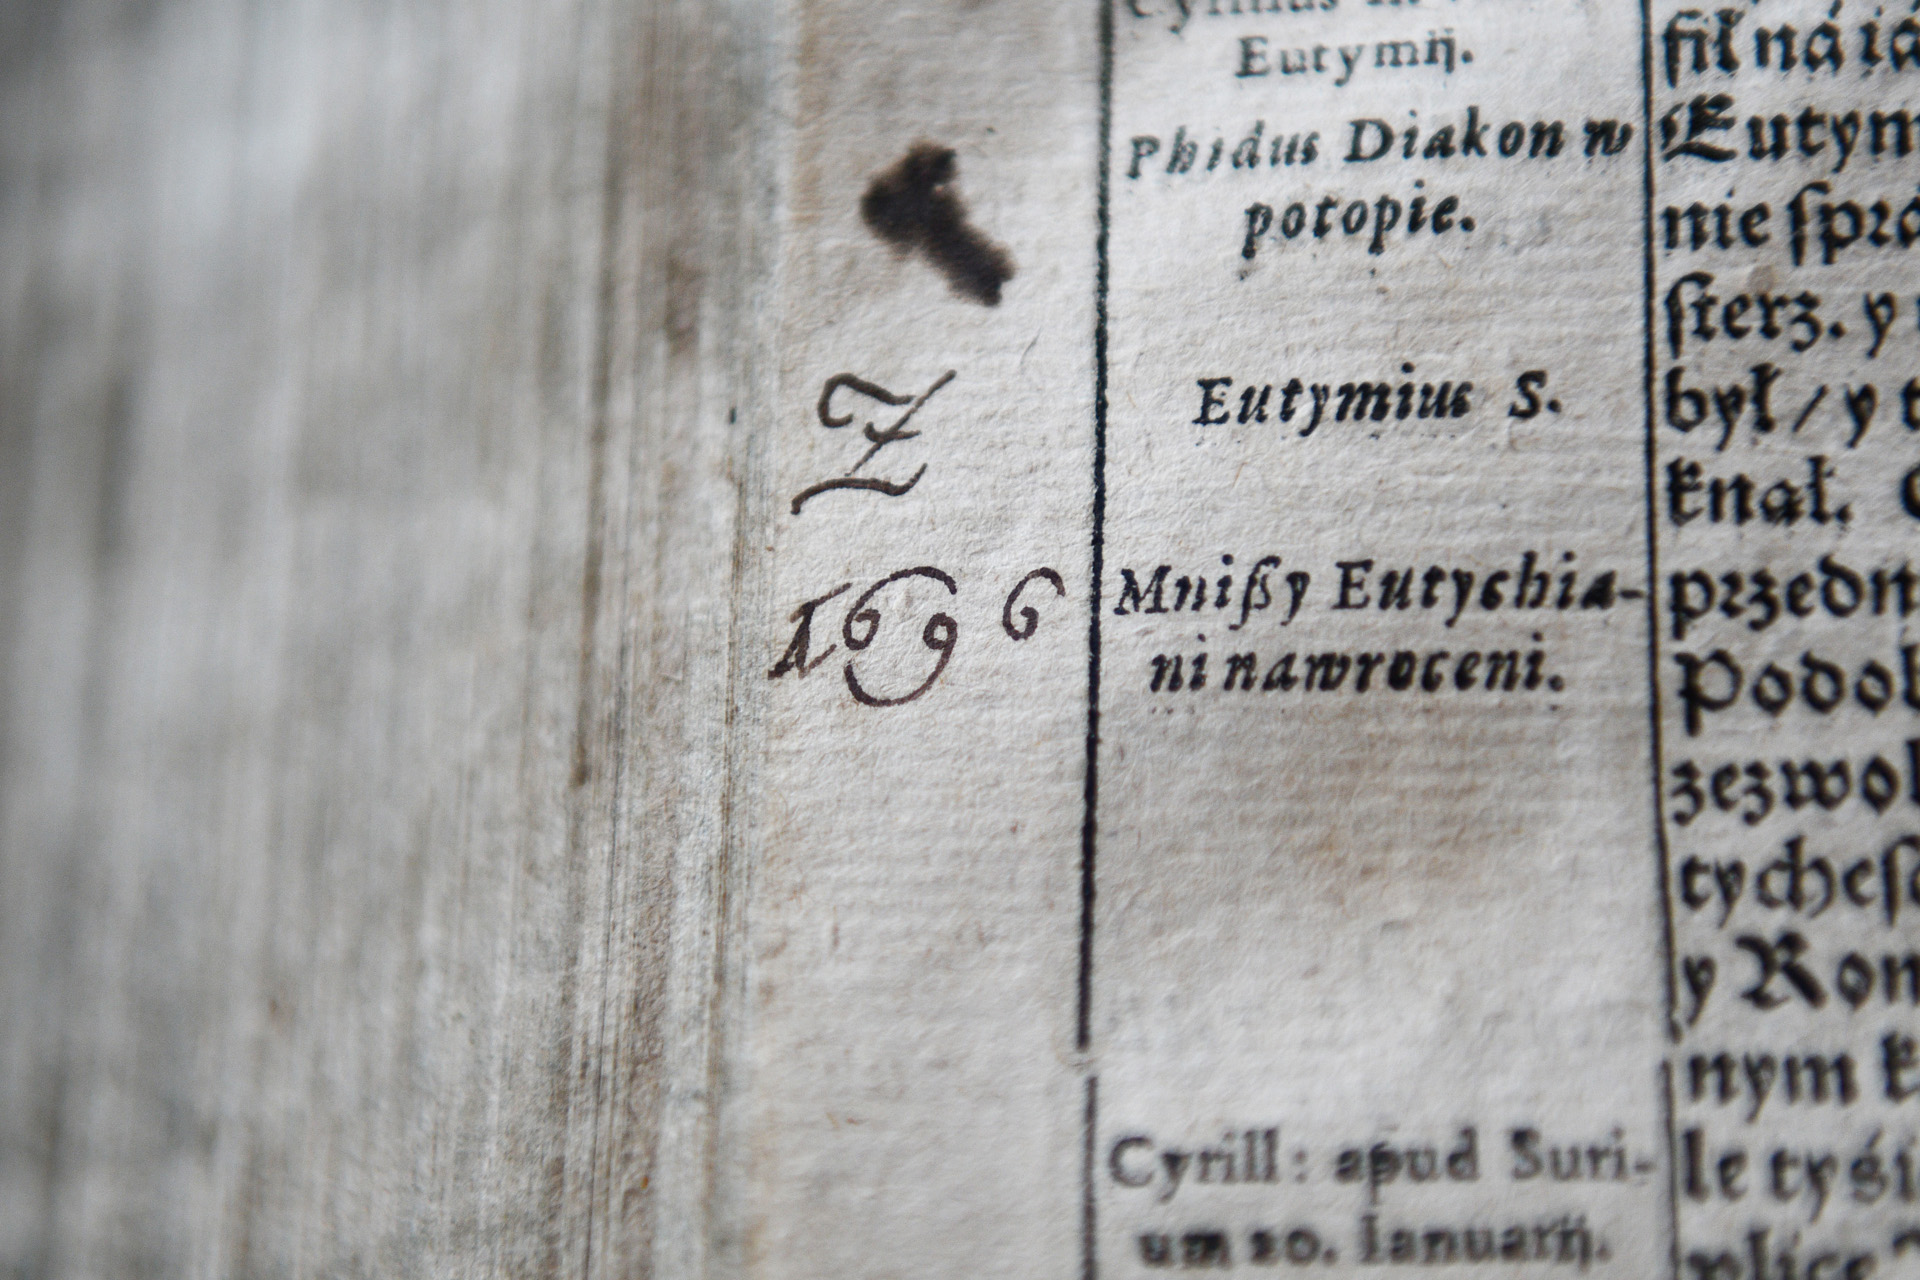 Eutymij.
Phidus Diakon w
potopie.
Eutymius S.
Mnißy Eutychia-
ni nawroceni.
Cyrill: apud Suri-
um 20. Ianuarij.
Z
1696
fił ná iá
Eutym
nie ſprá
ſterz. y
był / y t
knął.
przedn
Podob
zezwol
tycheſ
y Rom
nym k
le tyśi